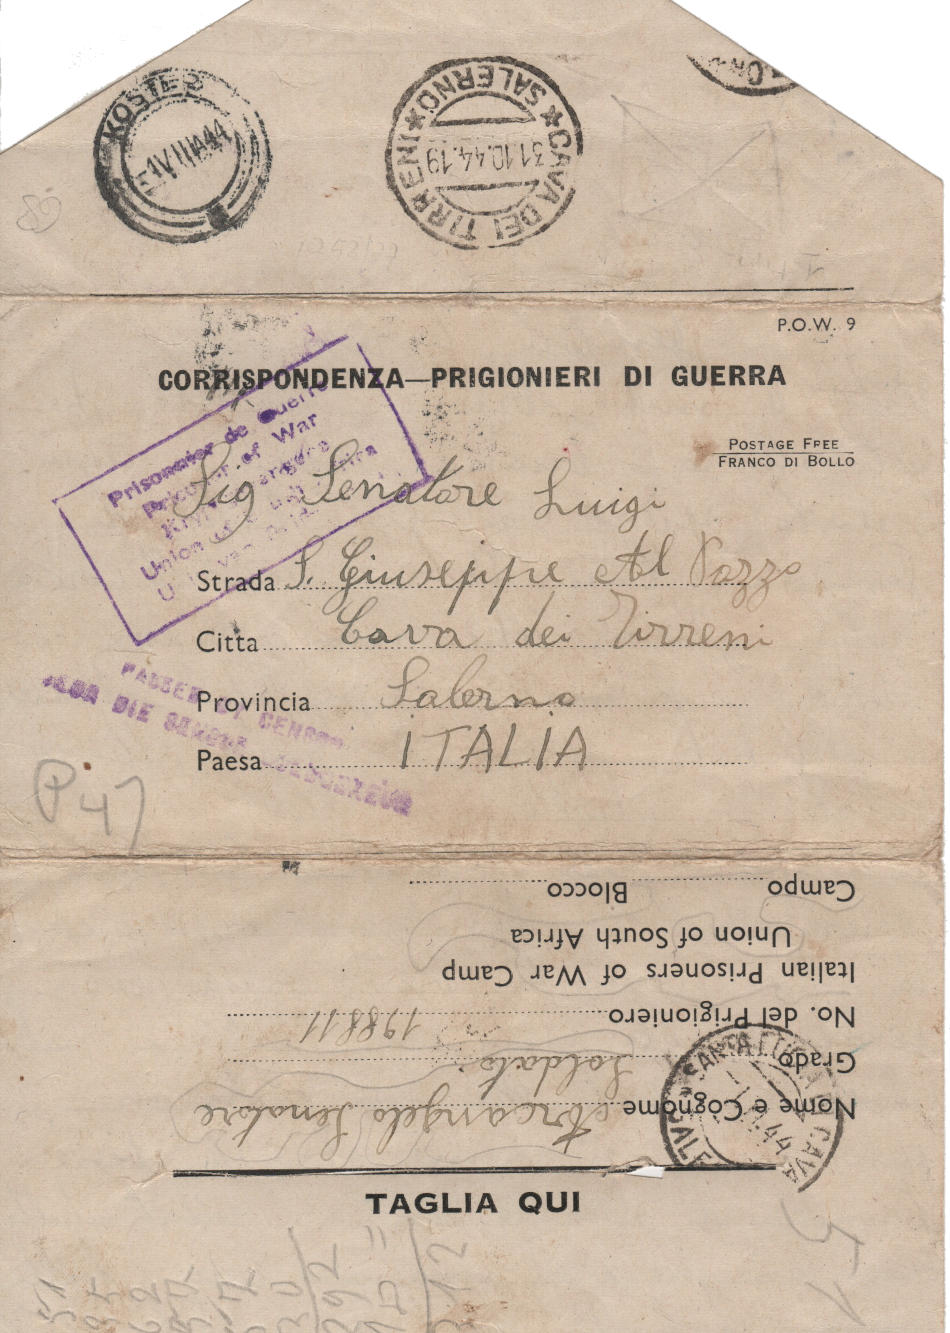 KOSTER
1 VIII 44
CAVA DEI TIRRENI
* SALERNO *
31.10.44.19
P.O.W. 9
CORRISPONDENZA—PRIGIONIERI DI GUERRA
POSTAGE FREE
FRANCO DI BOLLO
Prisonnier de Guerre
Prisoner of War
Union of
Sig Senatore Luigi
Strada S. Giuseppe Al Pozzo
Citta Cava dei Tirreni
Provincia Salerno
Paesa ITALIA
PASSED BY CENSOR
DEUR DIE SENSOR GOEDGEKEUR
P 47
Campo Blocco
Union of South Africa
Italian Prisoners of War Camp
No. del Prigioniero 198811
Grado Soldato
Nome e Cognome Arcangelo Senatore
SANTA LUCIA DI CAVA
44
TAGLIA QUI
51